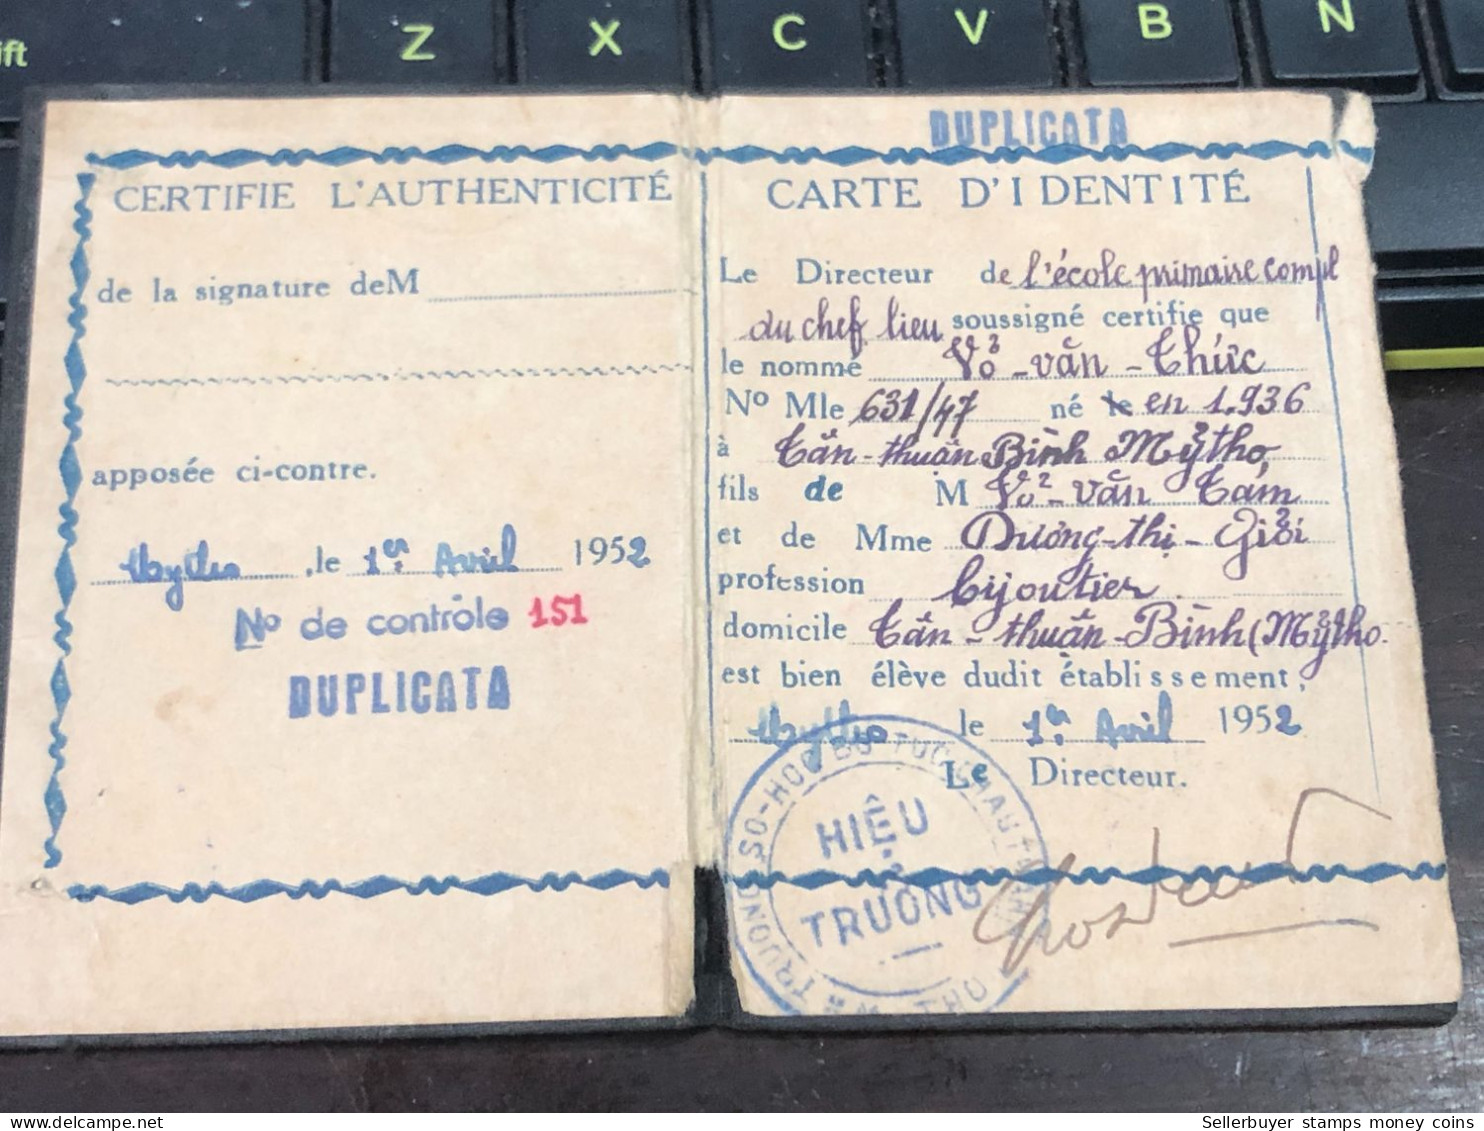 ift Z X C V B N
CERTIFIE L'AUTHENTICITÉ
de la signature de M
apposée ci-contre.
Mytho, le 1er Avril 1952
No de contrôle 151
DUPLICATA
DUPLICATA
CARTE D'IDENTITÉ
Le Directeur de l'école primaire compl
du chef lieu soussigné certifie que
le nommé Võ-văn-Thức
No Mle 631/47 né le en 1.936
à Tân-thuận Bình Mỹtho
fils de M Võ-văn Tám
et de Mme Dương-thị-Giỏi
profession bijoutier
domicile Tân-thuận-Bình (Mỹtho.
est bien élève dudit établissement,
Mytho le 1er Avril 1952
Le Directeur.
HIỆU
TRƯỞNG
TRUONG SO-HOC BO TUC CHAU THANH
MY THO
Sellerbuyer stamps money coins